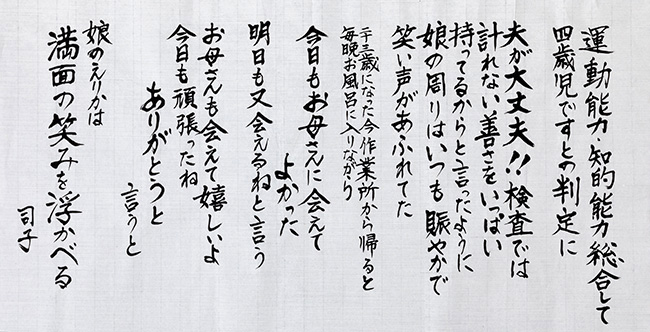 運動能力・知的能力総合して
四歳児ですとの判定に
夫が大丈夫!!検査では
計れない善さをいっぱい
持ってるからと言ったように
娘の周りはいつも賑やかで
笑い声があふれてた
二十三歳になった今作業所から帰ると
毎晩お風呂に入りながら
今日もお母さんに会えて
よかった
明日も又会えるねと言う
お母さんも会えて嬉しいよ
今日も頑張ったね
ありがとうと
言うと
娘のえりかは
満面の笑みを浮かべる
司子